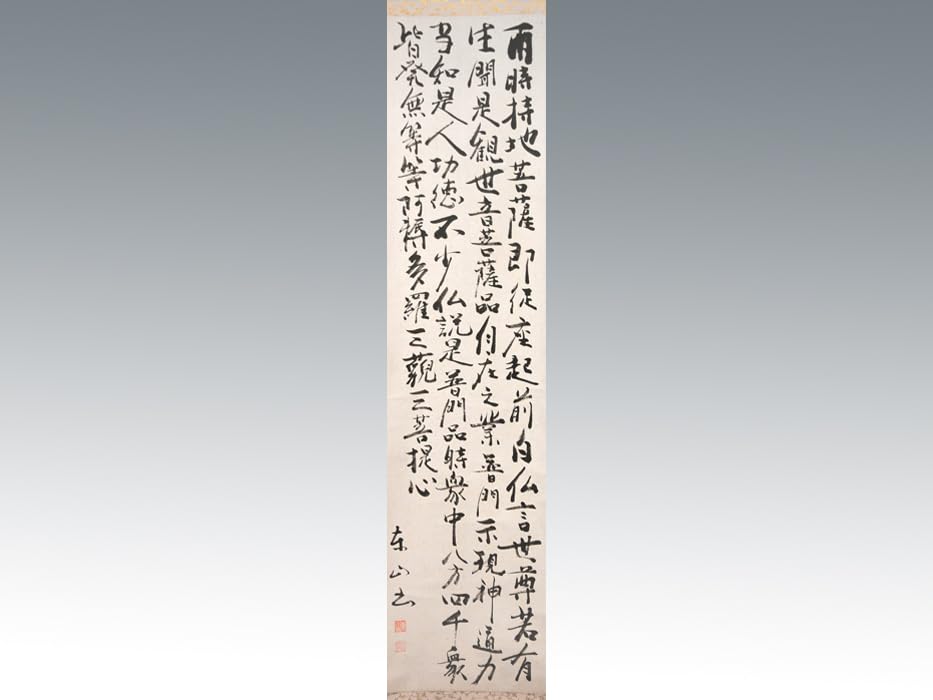 爾時持地菩薩即従座起前白仏言世尊若有
生聞是観世音菩薩品自在之業普門示現神通力
当知是人功徳不少仏説是普門品時衆中八万四千衆
皆発無等等阿耨多羅三藐三菩提心
東山書